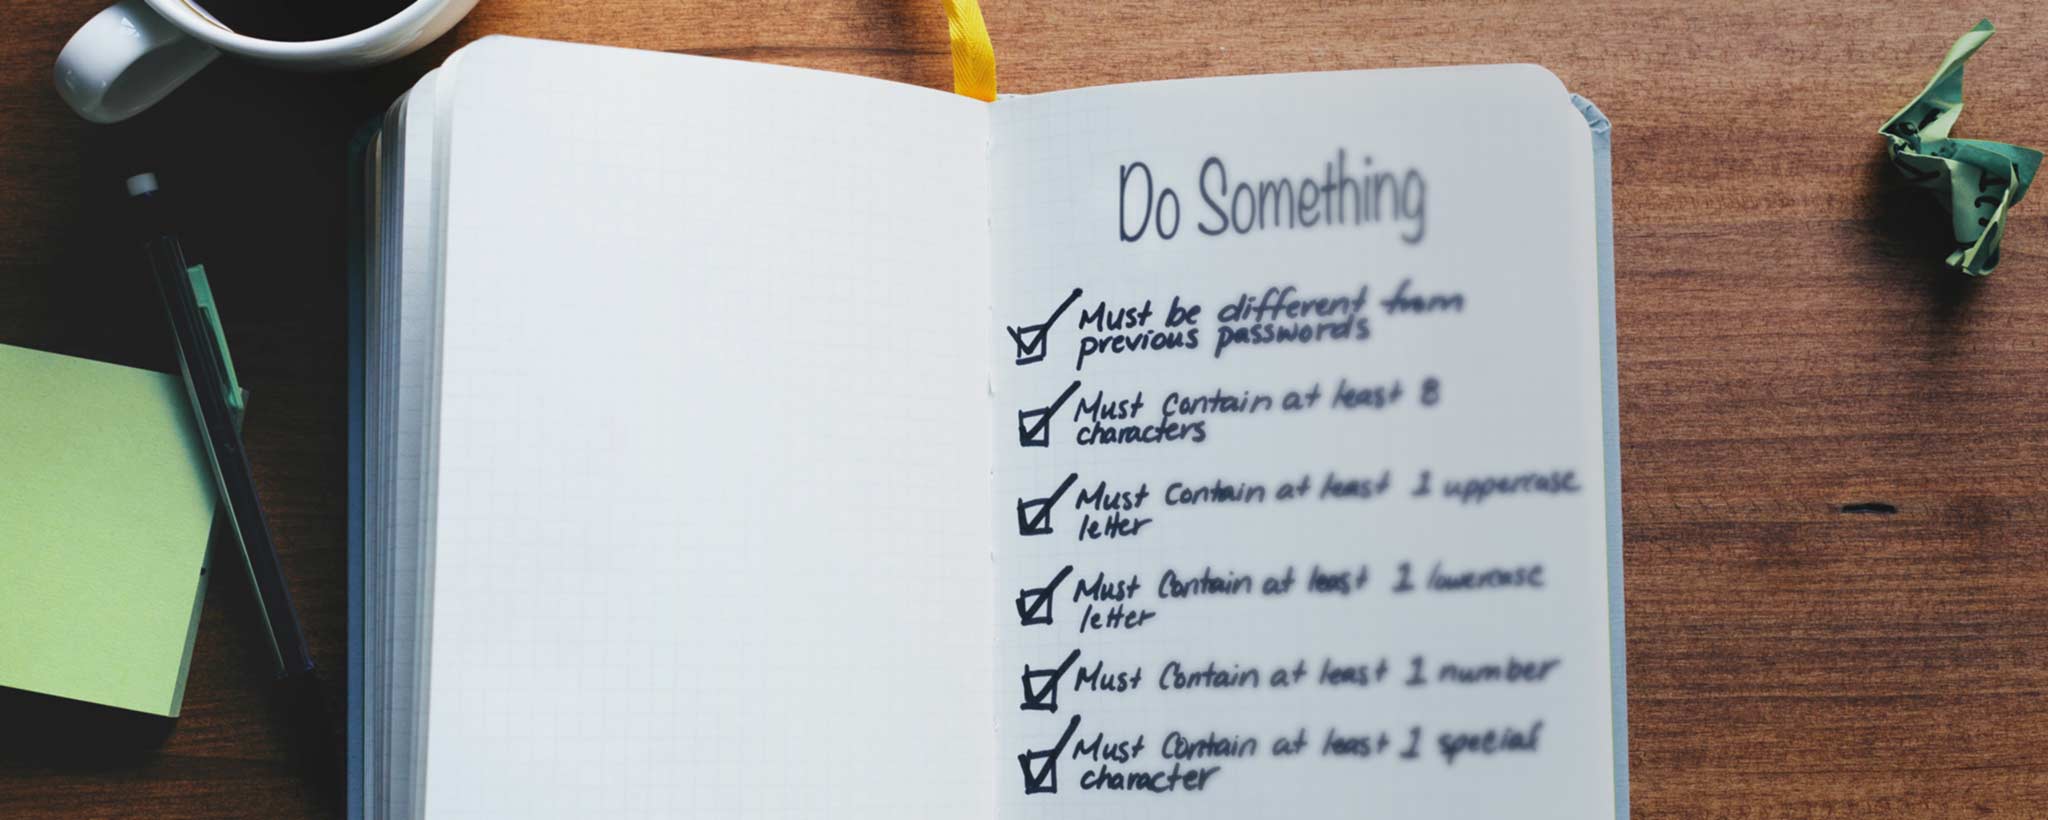 Do Something
Must be different from
previous passwords
Must Contain at least 8
characters
Must Contain at least 1 uppercase
letter
Must Contain at least 1 lowercase
letter
Must Contain at least 1 number
Must Contain at least 1 special
character